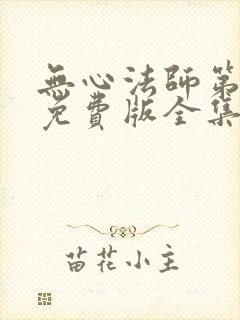 無心法師第
免費版全集
苗花小主